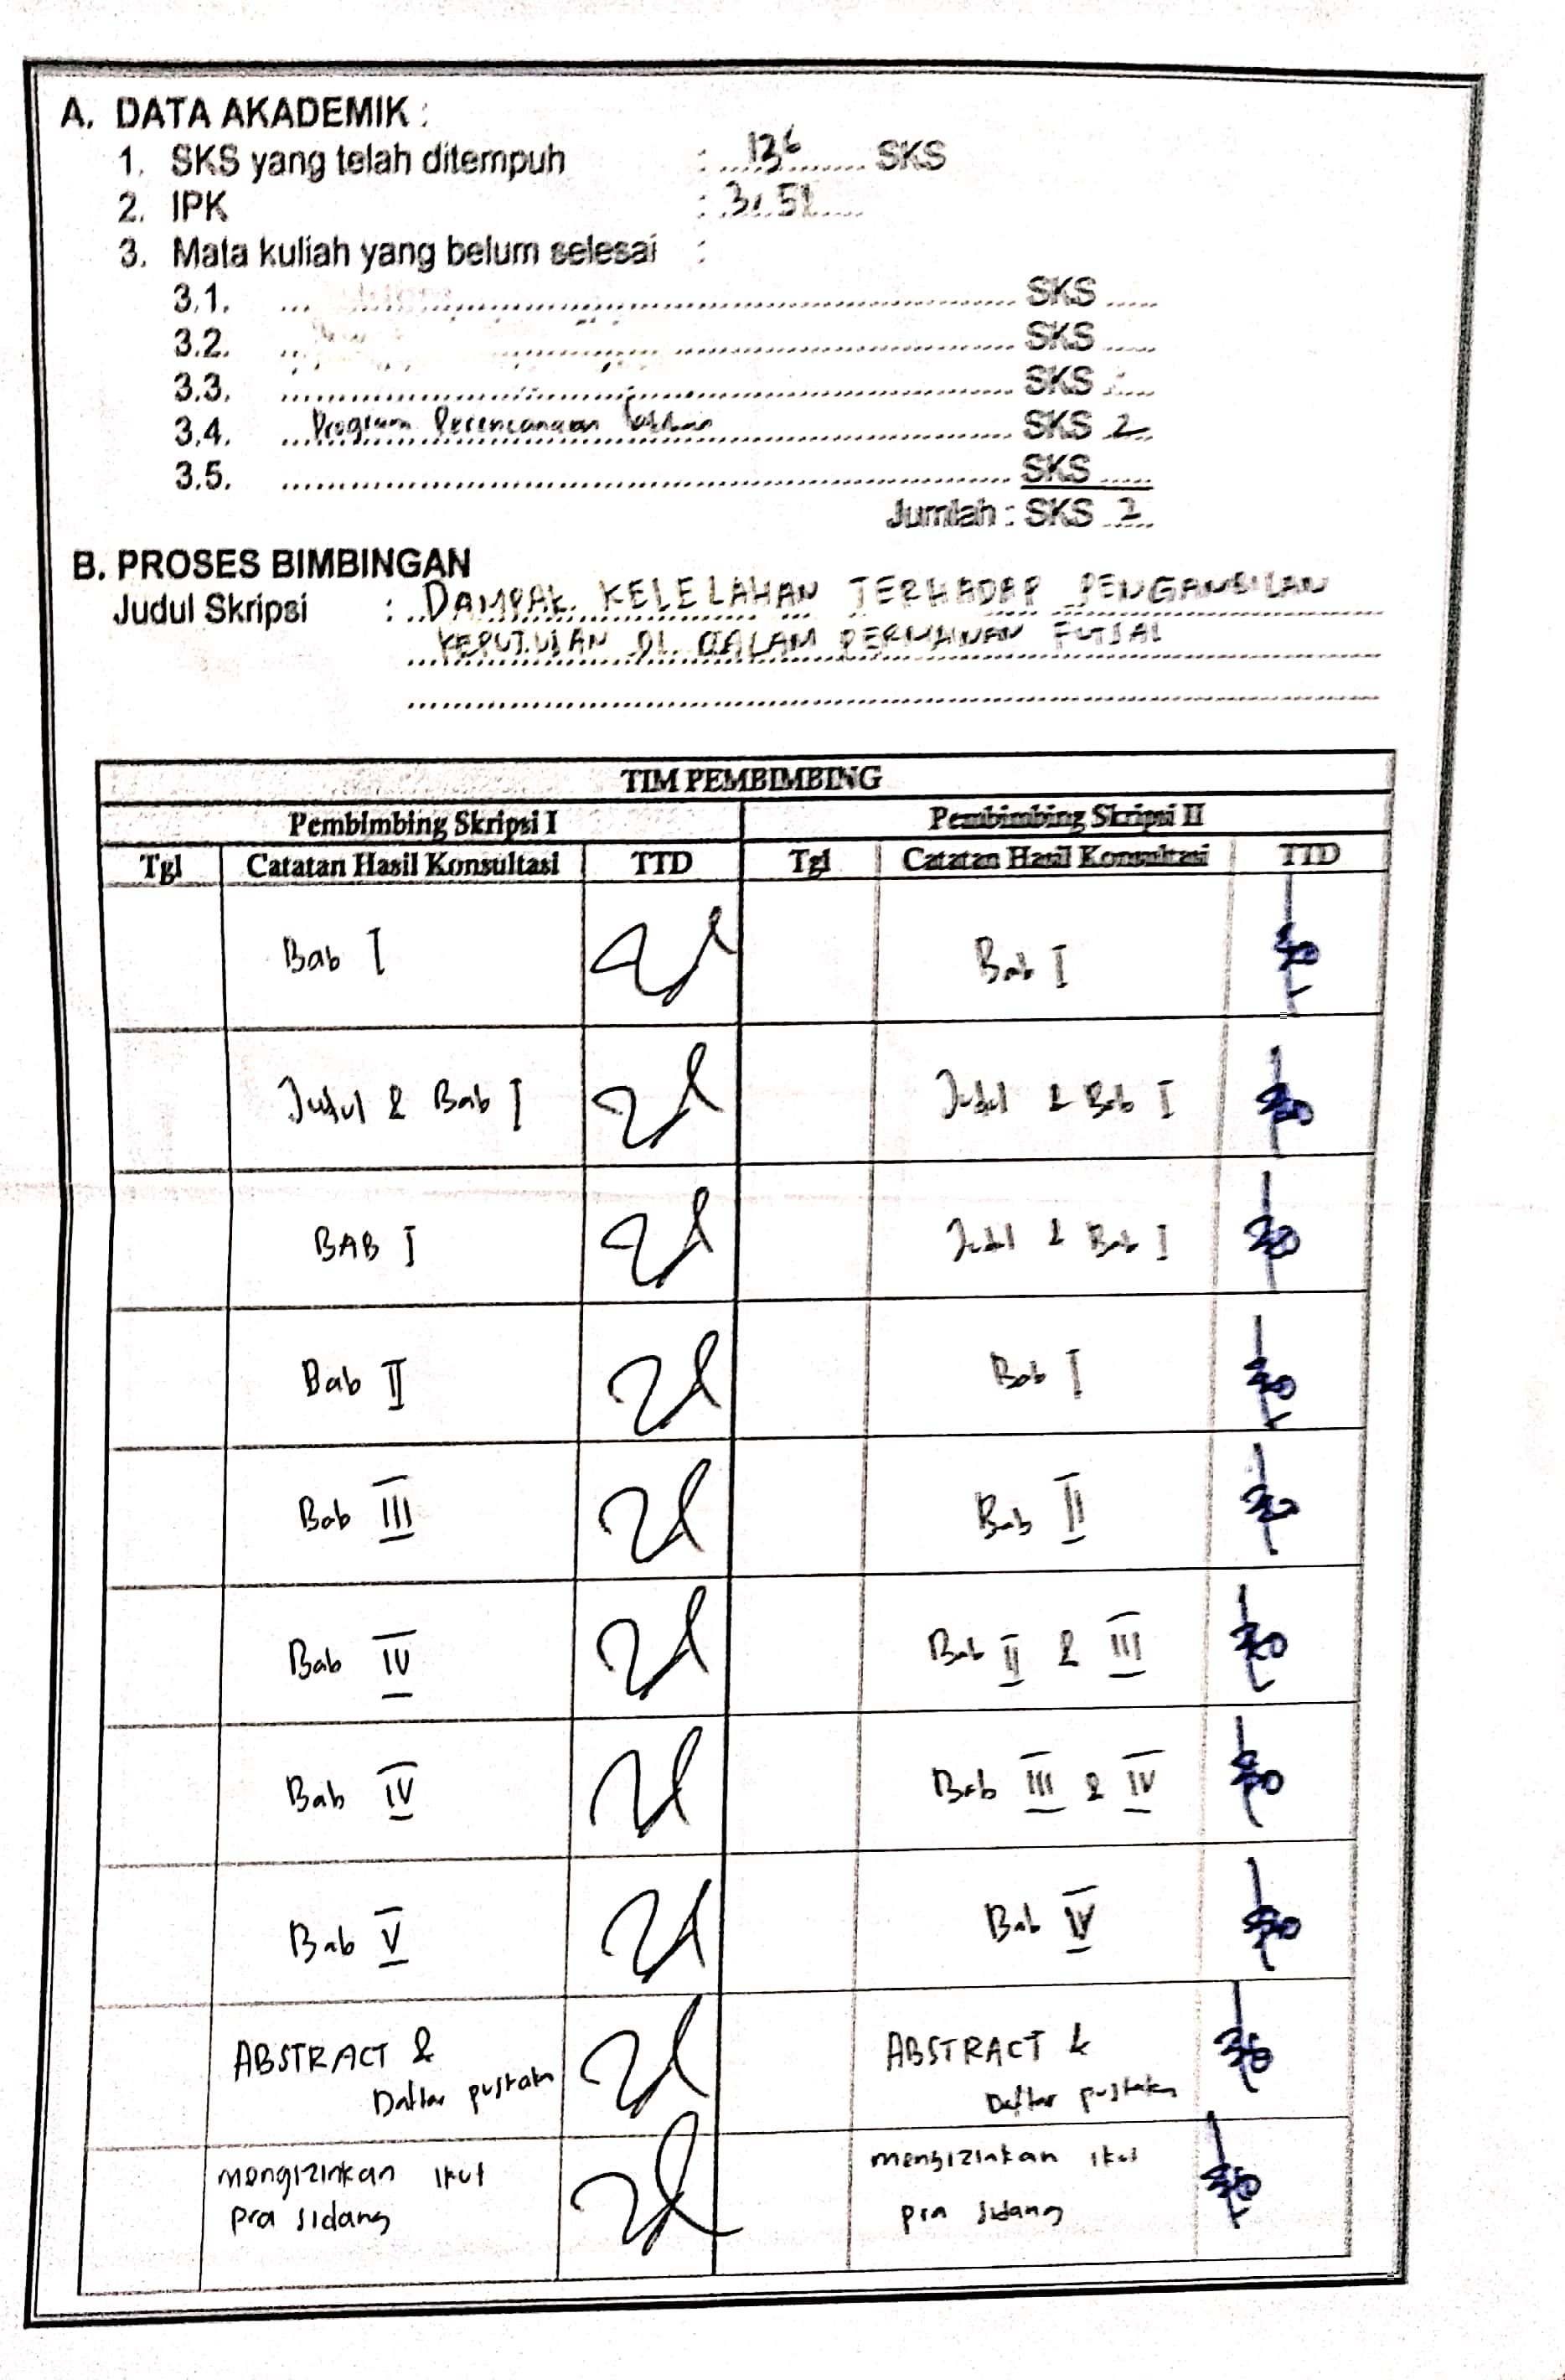 A. DATA AKADEMIK :
1. SKS yang telah ditempuh : 136 SKS
2. IPK :
3. Mata kuliah yang belum selesai :
3.1. SKS
3.2. SKS
3.3. SKS
3.4. Program Perencanaan SKS 2
3.5. SKS
Jumlah : SKS 2
B. PROSES BIMBINGAN
Judul Skripsi : DAMPAK KELELAHAN TERHADAP PENGAMBILAN
KEPUTUSAN DI DALAM PERMAINAN FUTSAL
TIM PEMBIMBING
Pembimbing Skripsi I Pembimbing Skripsi II
Tgl Catatan Hasil Konsultasi TTD Tgl Catatan Hasil Konsultasi TTD
Bab I Bab I
Judul & Bab I Judul & Bab I
BAB I Judul & Bab I
Bab II Bab I
Bab III Bab II
Bab IV Bab II & III
Bab IV Bab III & IV
Bab V Bab IV
ABSTRACT & ABSTRACT &
Daftar pustaka Daftar pustaka
mengizinkan ikut mengizinkan ikut
pra sidang pra sidang